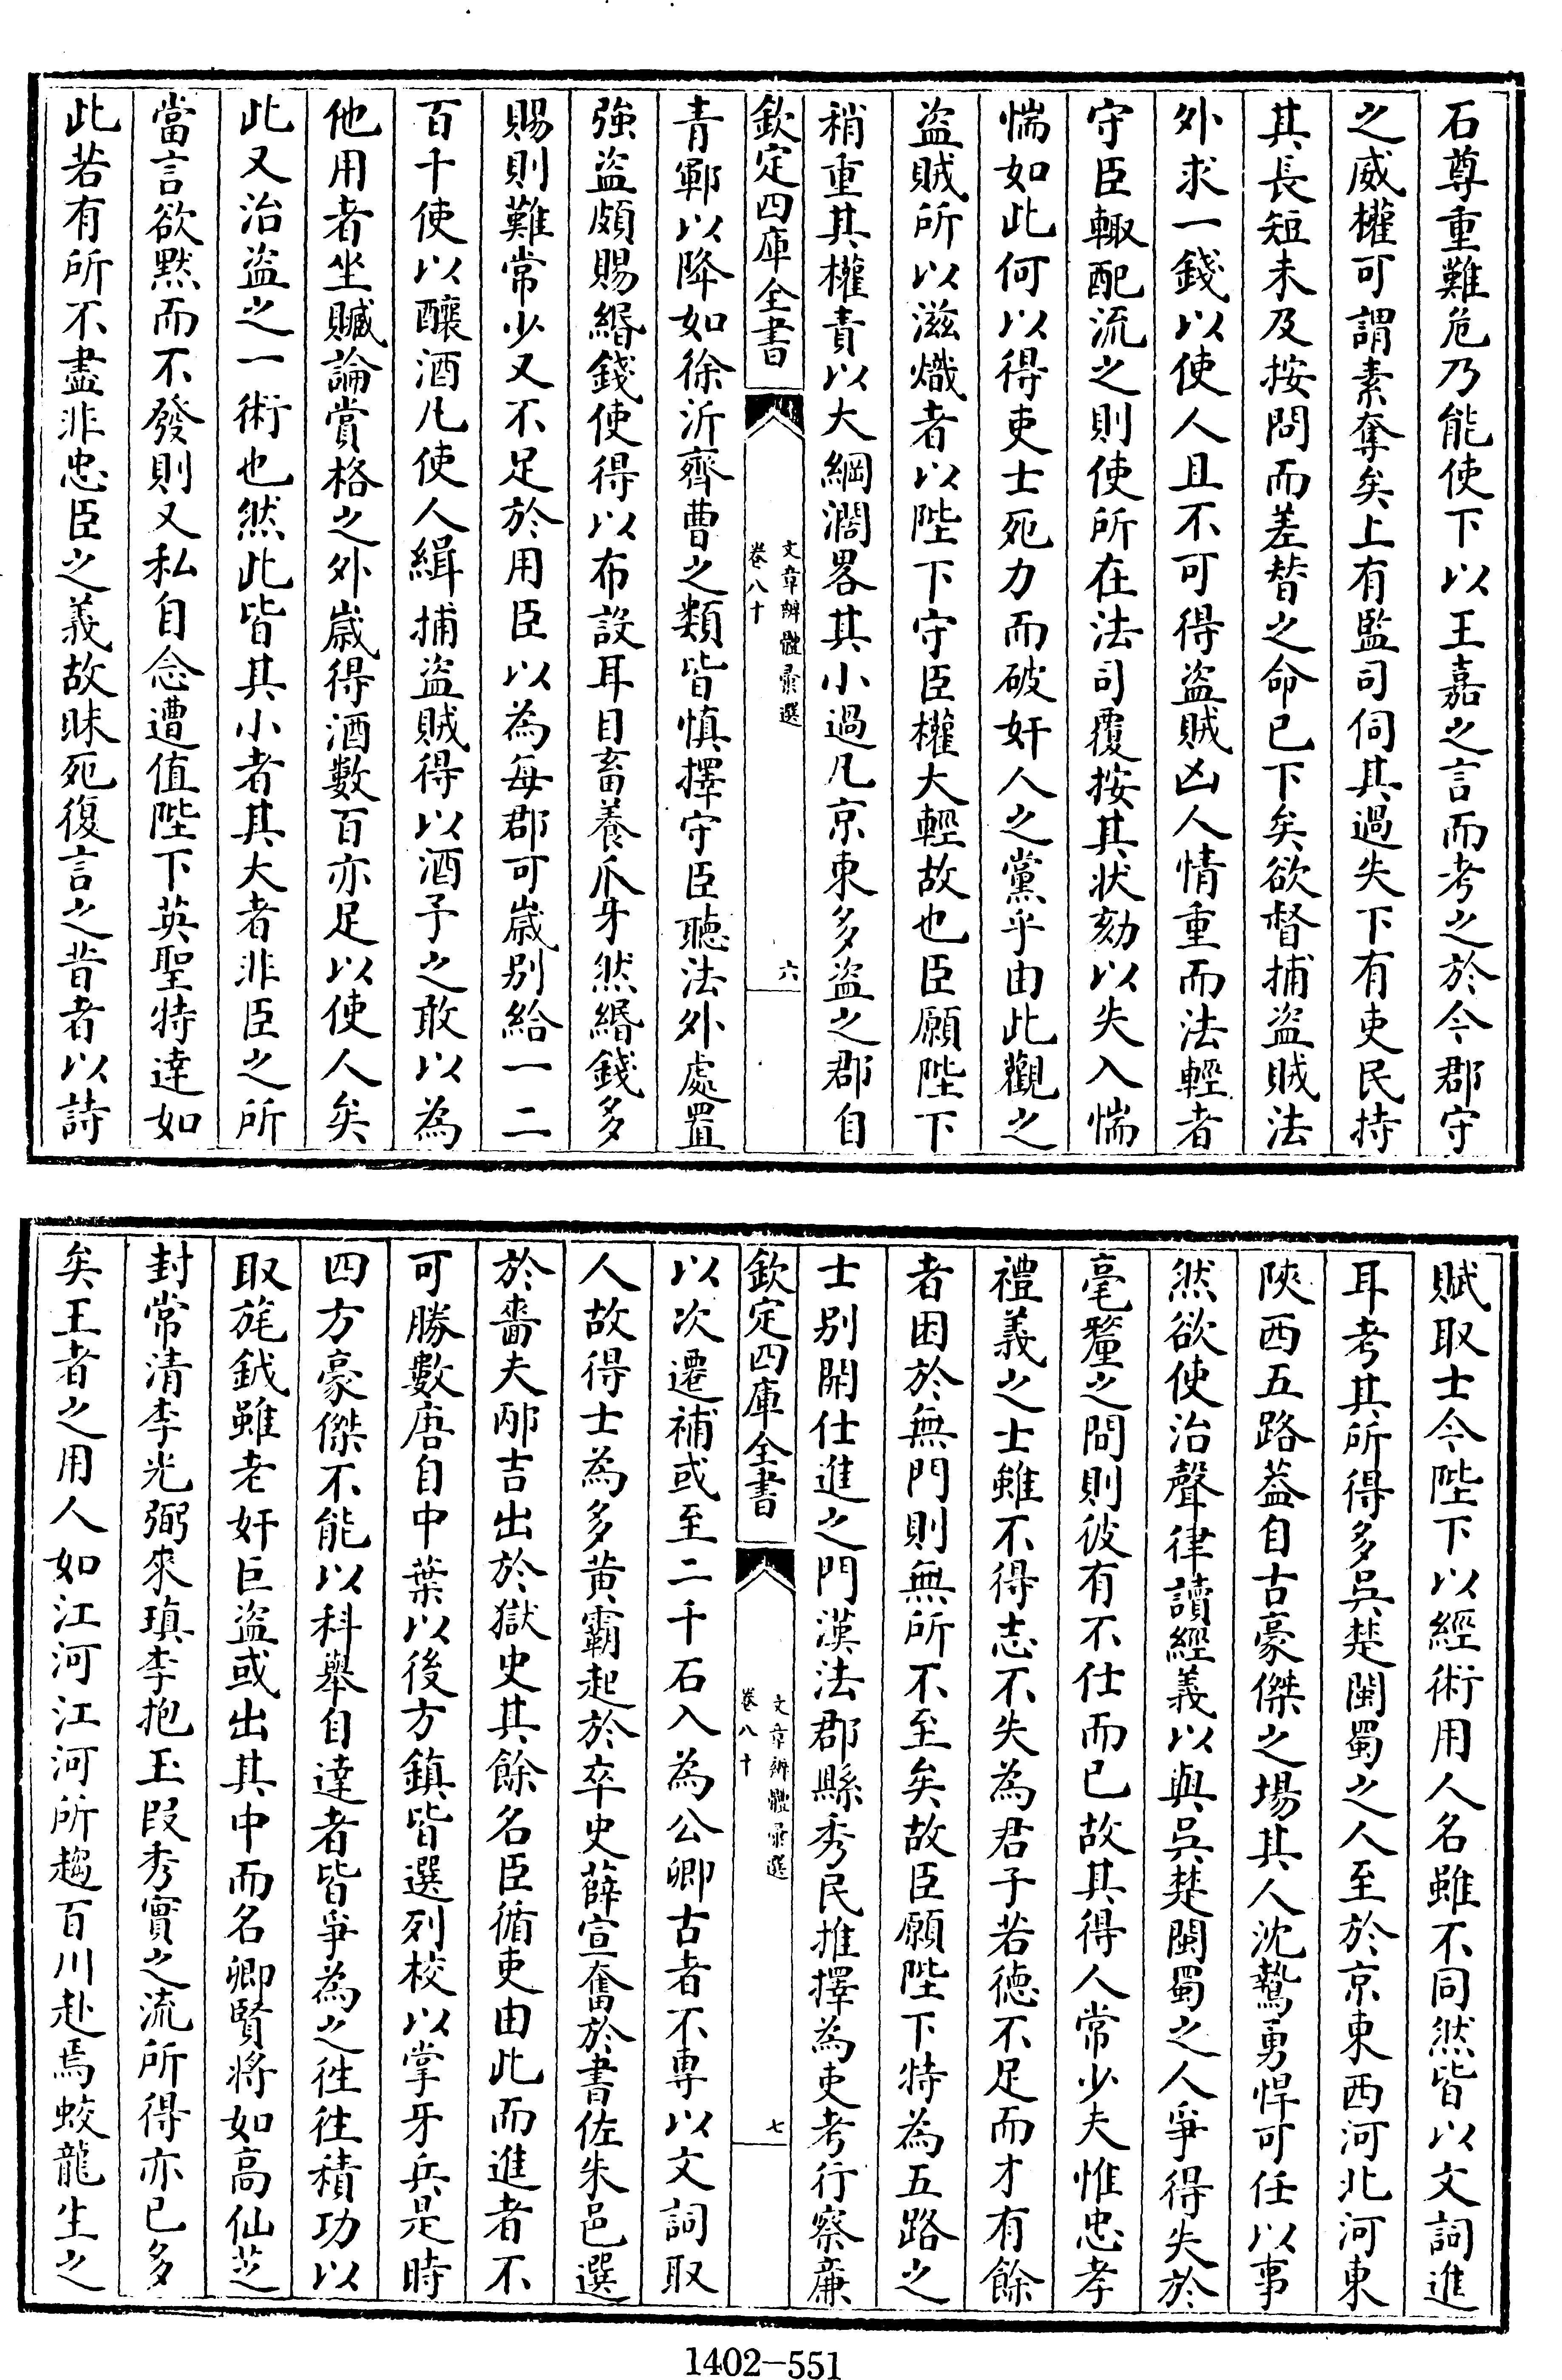 石尊重難危乃能使下以王嘉之言而考之於今郡守
之威權可謂素奪矣上有監司伺其過失下有吏民持
其長短未及按問而差替之命已下矣欲督捕盜賊法
外求一錢以使人且不可得盜賊凶人情重而法輕者
守臣輙配流之則使所在法司覆按其状劾以失入惴
惴如此何以得吏士死力而破奸人之黨乎由此觀之
盜賊所以滋熾者以陛下守臣權大輕故也臣願陛下
稍重其權責以大綱濶畧其小過凡京東多盜之郡自
欽定四庫全書
文章辨體彙選
卷八十
六
青鄆以降如徐沂齊曹之類皆慎擇守臣聽法外處置
強盜頗賜緡錢使得以布設耳目畜養爪牙然緡錢多
賜則難常少又不足於用臣以為每郡可嵗别給一二
百千使以釀酒凡使人緝捕盜賊得以酒予之敢以為
他用者坐贓論賞格之外嵗得酒數百亦足以使人矣
此又治盜之一術也然此皆其小者其大者非臣之所
當言欲黙而不發則又私自念遭值陛下英聖特達如
此若有所不盡非忠臣之義故昧死復言之昔者以詩
賦取士今陛下以經術用人名雖不同然皆以文詞進
耳考其所得多吳楚閩蜀之人至於京東西河北河東
陜西五路葢自古豪傑之場其人沈鷙勇悍可任以事
然欲使治聲律讀經義以與吳楚閩蜀之人爭得失於
毫釐之間則彼有不仕而已故其得人常少夫惟忠孝
禮義之士雖不得志不失為君子若德不足而才有餘
者困於無門則無所不至矣故臣願陛下特為五路之
士别開仕進之門漢法郡縣秀民推擇為吏考行察廉
欽定四庫全書
文章辨體彙選
卷八十
七
以次遷補或至二千石入為公卿古者不専以文詞取
人故得士為多黄霸起於卒史薛宣奮於書佐朱邑選
於嗇夫邴吉出於獄史其餘名臣循吏由此而進者不
可勝數唐自中葉以後方鎮皆選列校以掌牙兵是時
四方豪傑不能以科舉自達者皆爭為之徃徃積功以
取旄鉞雖老奸巨盜或出其中而名卿賢将如高仙芝
封常清李光弼來瑱李抱玉叚秀實之流所得亦已多
矣王者之用人如江河江河所趨百川赴焉蛟龍生之
1402-551